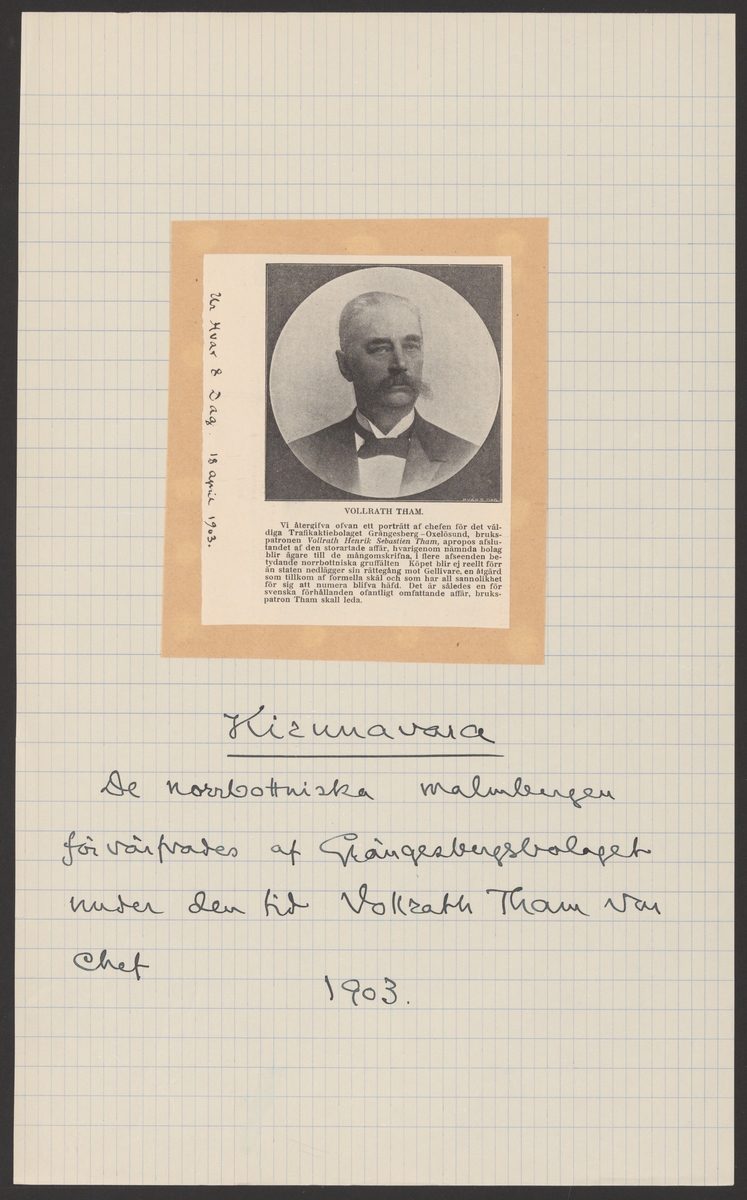 Ur Hvar 8 Dag. 18 april 1903.
VOLLRATH THAM.
Vi återgifva ofvan ett porträtt af chefen för det väl-
diga Trafikaktiebolaget Grängesberg—Oxelösund, bruks-
patronen Vollrath Henrik Sebastien Tham, apropos afslu-
tandet af den storartade affär, hvarigenom nämnda bolag
blir ägare till de mångomskrifna, i flere afseenden be-
tydande norrbottniska gruffälten Köpet blir ej reellt förr
än staten nedlägger sin rättegång mot Gellivare, en åtgärd
som tillkom af formella skäl och som har all sannolikhet
för sig att numera blifva häfd. Det är således en för
svenska förhållanden ofantligt omfattande affär, bruks-
patron Tham skall leda.
Kirunavara
De norrbottniska malmbergen
förvärfvades af Grängesbergsbolaget
under den tid Vollrath Tham var
Chef
1903.